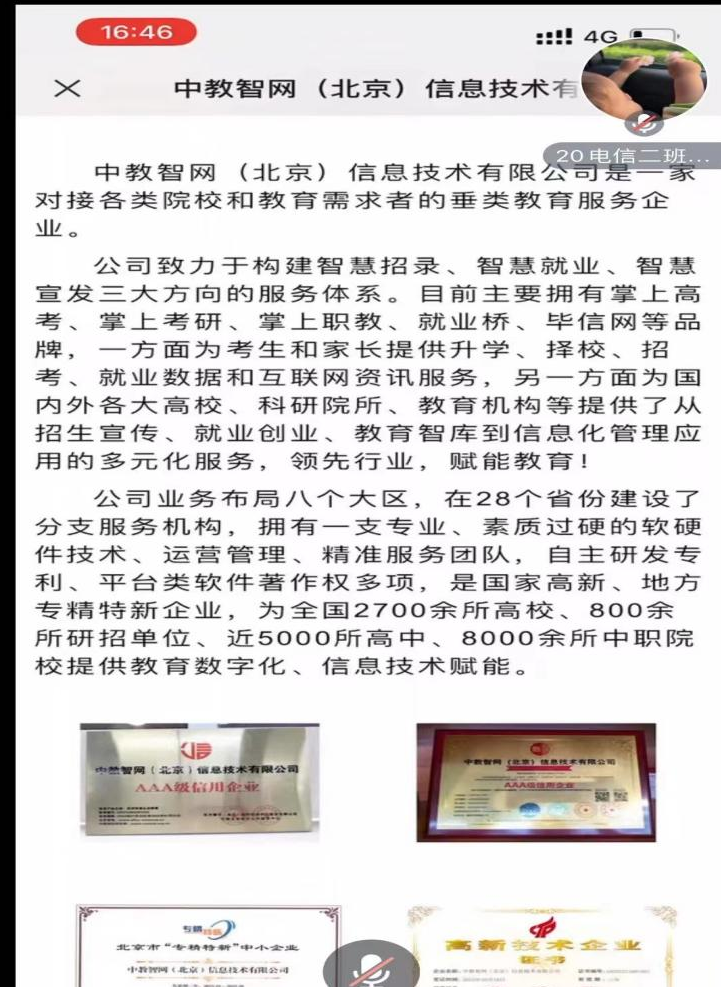 16:46
4G
中教智网（北京）信息技术有
20电信二班...
中教智网（北京）信息技术有限公司是一家
对接各类院校和教育需求者的垂类教育服务企
业。
公司致力于构建智慧招录、智慧就业、智慧
宣发三大方向的服务体系。目前主要拥有掌上高
考、掌上考研、掌上职教、就业桥、毕信网等品
牌，一方面为考生和家长提供升学、择校、招
考、就业数据和互联网资讯服务，另一方面为国
内外各大高校、科研院所、教育机构等提供了从
招生宣传、就业创业、教育智库到信息化管理应
用的多元化服务，领先行业，赋能教育！
公司业务布局八个大区，在28个省份建设了
分支服务机构，拥有一支专业、素质过硬的软硬
件技术、运营管理、精准服务团队，自主研发专
利、平台类软件著作权多项，是国家高新、地方
专精特新企业，为全国2700余所高校、800余
所研招单位、近5000所高中、8000余所中职院
校提供教育数字化、信息技术赋能。
中教智网（北京）信息技术有限公司
AAA级信用企业
中教智网（北京）信息技术有限公司
AAA级信用企业
专精特新
北京市“专精特新”中小企业
中教智网（北京）信息技术有限公司
高新技术企业
证书